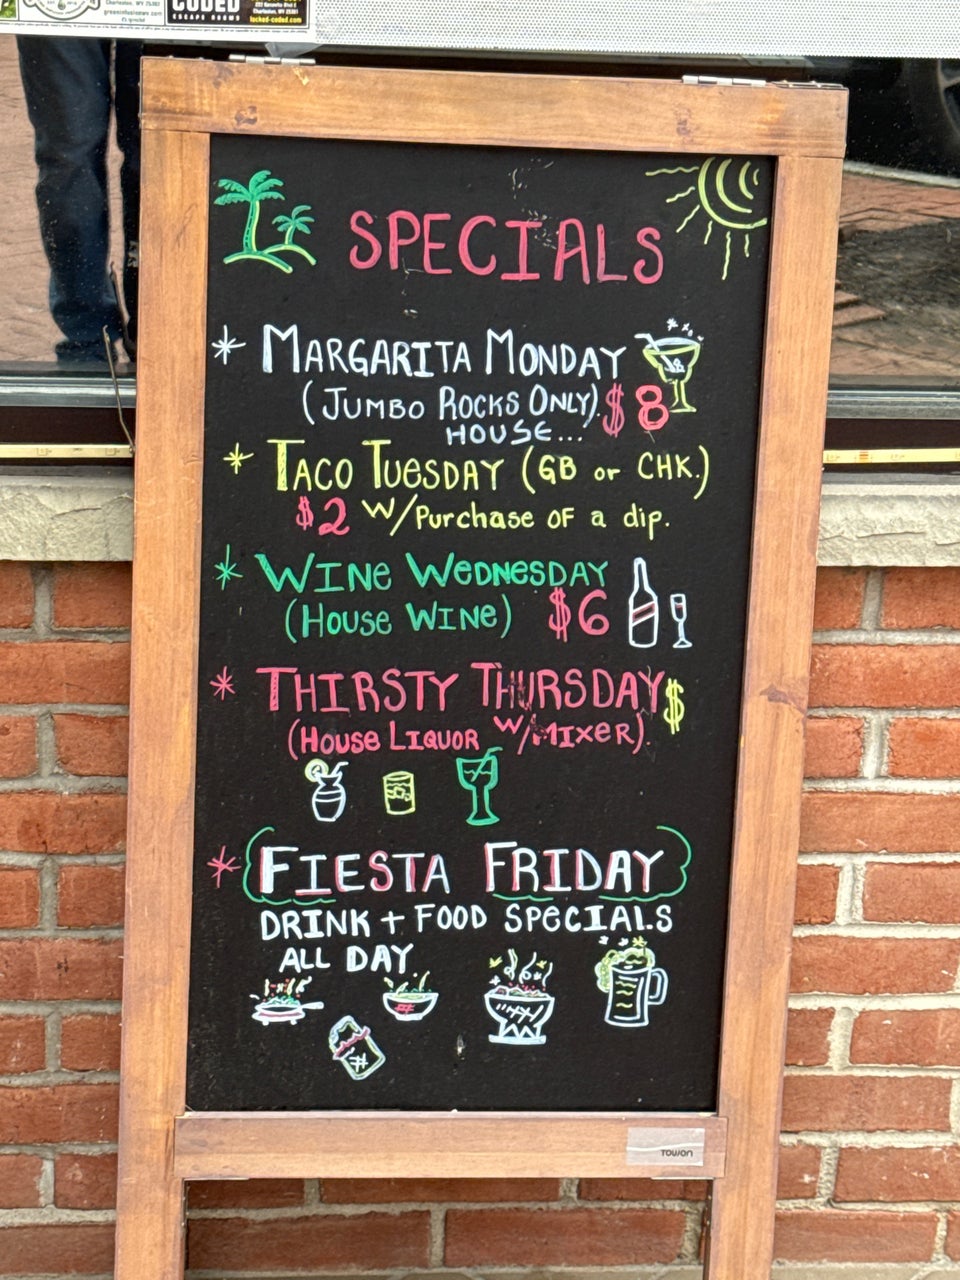 Charleston, WV 25302
CODED
ESCAPE ROOMS
Charleston, WV 25301
locked-coded.com
SPECIALS
* MARGARITA MONDAY
(JUMBO ROCKS ONLY). $8
HOUSE...
* TACO TUESDAY (GB or CHK.)
$2 W/Purchase OF a dip.
* WINE WEDNESDAY
(HOUSE WINE) $6
* THIRSTY THURSDAY $
(HOUSE LIQUOR W/MIXER)
* FIESTA FRIDAY
DRINK + FOOD SPECIALS
ALL DAY
TOWON